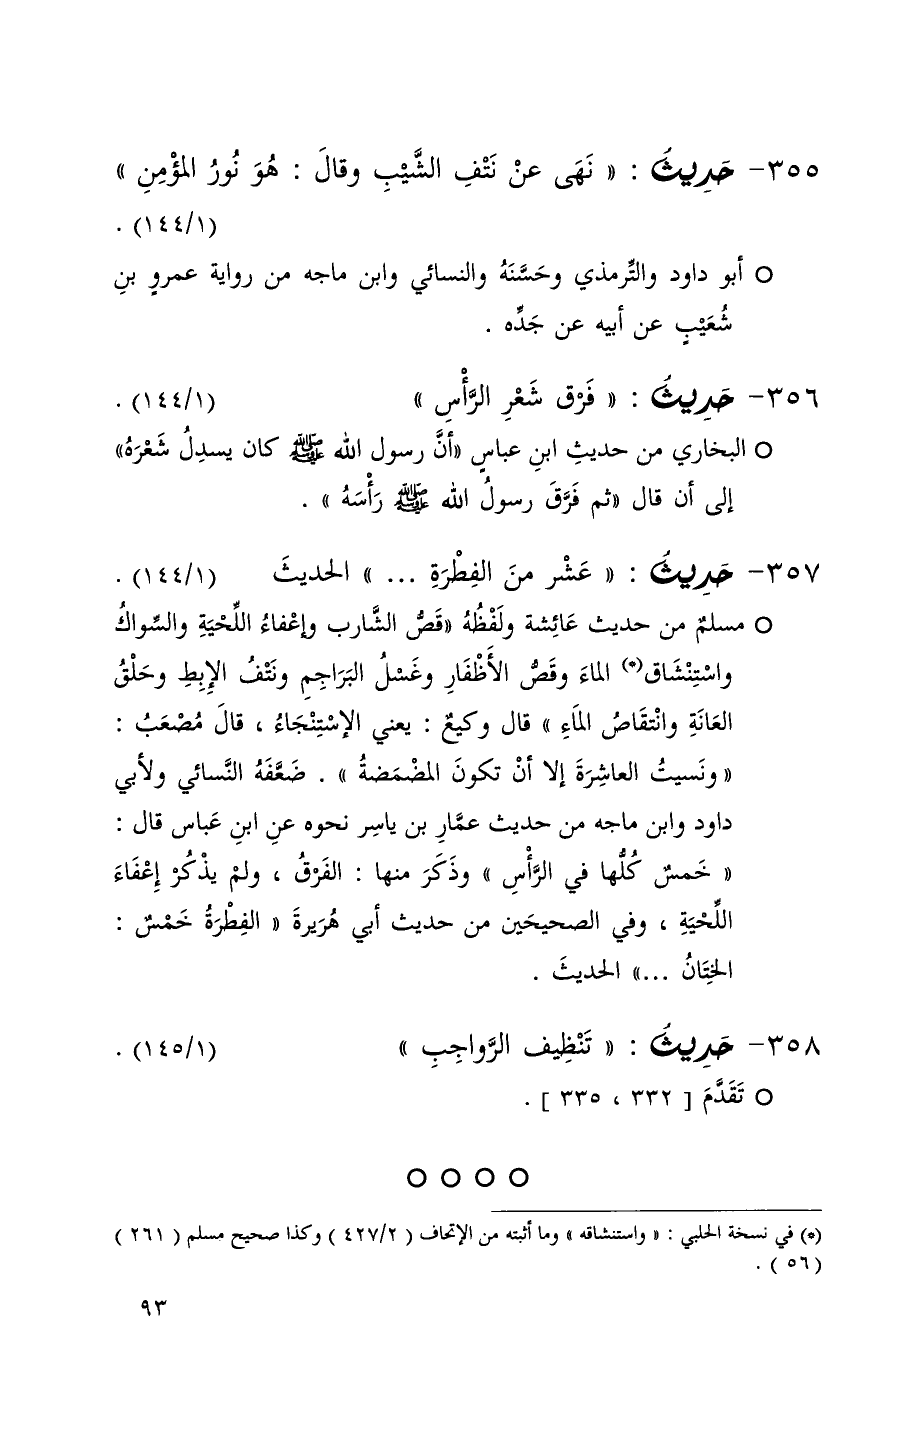 ٣٥٥- حَدِيثُ : « نَهَى عنْ نَتْفِ الشَّيْبِ وقالَ : هُوَ نُورُ المؤْمِنِ »
(١٤٤/١) .
○ أبو داود والتِّرمذي وحَسَّنَهُ والنسائي وابن ماجه من رواية عمروِ بنِ
شُعَيْبٍ عن أبيه عن جَدِّه .
٣٥٦- حَدِيثُ : « فَرْق شَعْرِ الرَّأْسِ » (١٤٤/١) .
○ البخاري من حديثِ ابنِ عباسٍ «أنَّ رسول الله ﷺ كان يسدِلُ شَعْرَهُ»
إلى أن قال «ثم فَرَّقَ رسولُ الله ﷺ رَأْسَهُ » .
٣٥٧- حَدِيثُ : « عَشْر منَ الفِطْرَةِ ... » الحديثَ (١٤٤/١) .
○ مسلمٌ من حديث عَائِشة ولَفْظُهُ «قَصُّ الشَّارب وإعْفاءُ اللِّحْيَةِ والسِّواكُ
واسْتِنْشَاق(*) الماءَ وقَصُّ الأَظْفَارِ وغَسْلُ البَرَاجِمِ ونَتْفُ الإِبِطِ وحَلْقُ
العَانَةِ وانْتقَاصُ المَاءِ » قال وكيعٌ : يعني الإسْتِنْجَاءُ ، قالَ مُصْعَبُ :
« ونَسيتُ العاشِرَةَ إلا أنْ تكونَ المضْمَضةُ » . ضَعَّفَهُ النَّسائي ولأبي
داود وابن ماجه من حديث عمَّارِ بن ياسِر نحوه عنِ ابنِ عَباس قال :
« خَمسٌ كُلُّها في الرَّأْسِ » وذَكَرَ منها : الفَرْقُ ، ولمْ يذْكُرْ إعْفَاءَ
اللِّحْيَةِ ، وفي الصحيحَين من حديث أبي هُرَيرةَ « الفِطْرَةُ خَمْسٌ :
الخِتَانُ ...» الحديثَ .
٣٥٨- حَدِيثُ : « تَنْظِيف الرَّواجِبِ » (١٤٥/١) .
○ تَقَدَّمَ [ ٣٣٢ ، ٣٣٥ ] .
○ ○ ○ ○
(*) في نسخة الحلبي : « واستنشاقه » وما أثبته من الإتحاف ( ٤٢٧/٢ ) وكذا صحيح مسلم ( ٢٦١ )
( ٥٦ ) .
٩٣